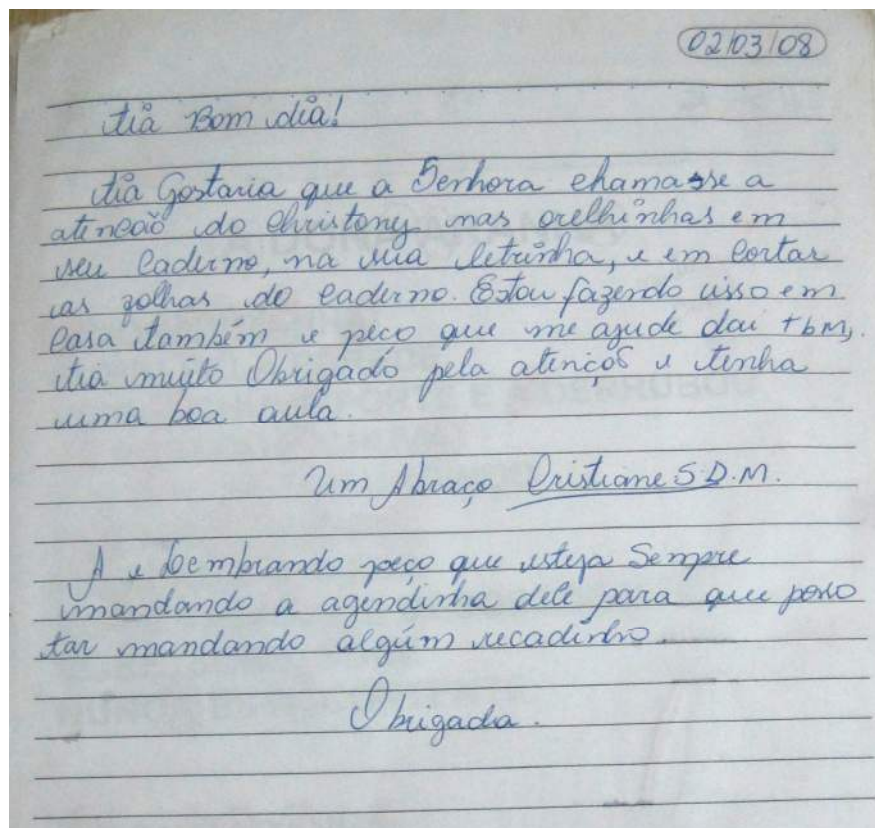 02/03/08
tia Bom dia!
tia Gostaria que a Senhora chamasse a
atineaõ do Christony mas orelhinhas em
seu Caderno, na sua letrinha, e em Cortar
as folhas do caderno. Estou fazendo isso em
Casa também e peco que me ajude dai tbm,
tia muito Obrigado pela atinçoõ e tenha
uma boa aula.
Um Abraço Cristiane S.D.M.
A e Lembrando peço que esteja Sempre
mandando a agendinha dele para que posso
tar mandando algúm recadinho.
Obrigada.